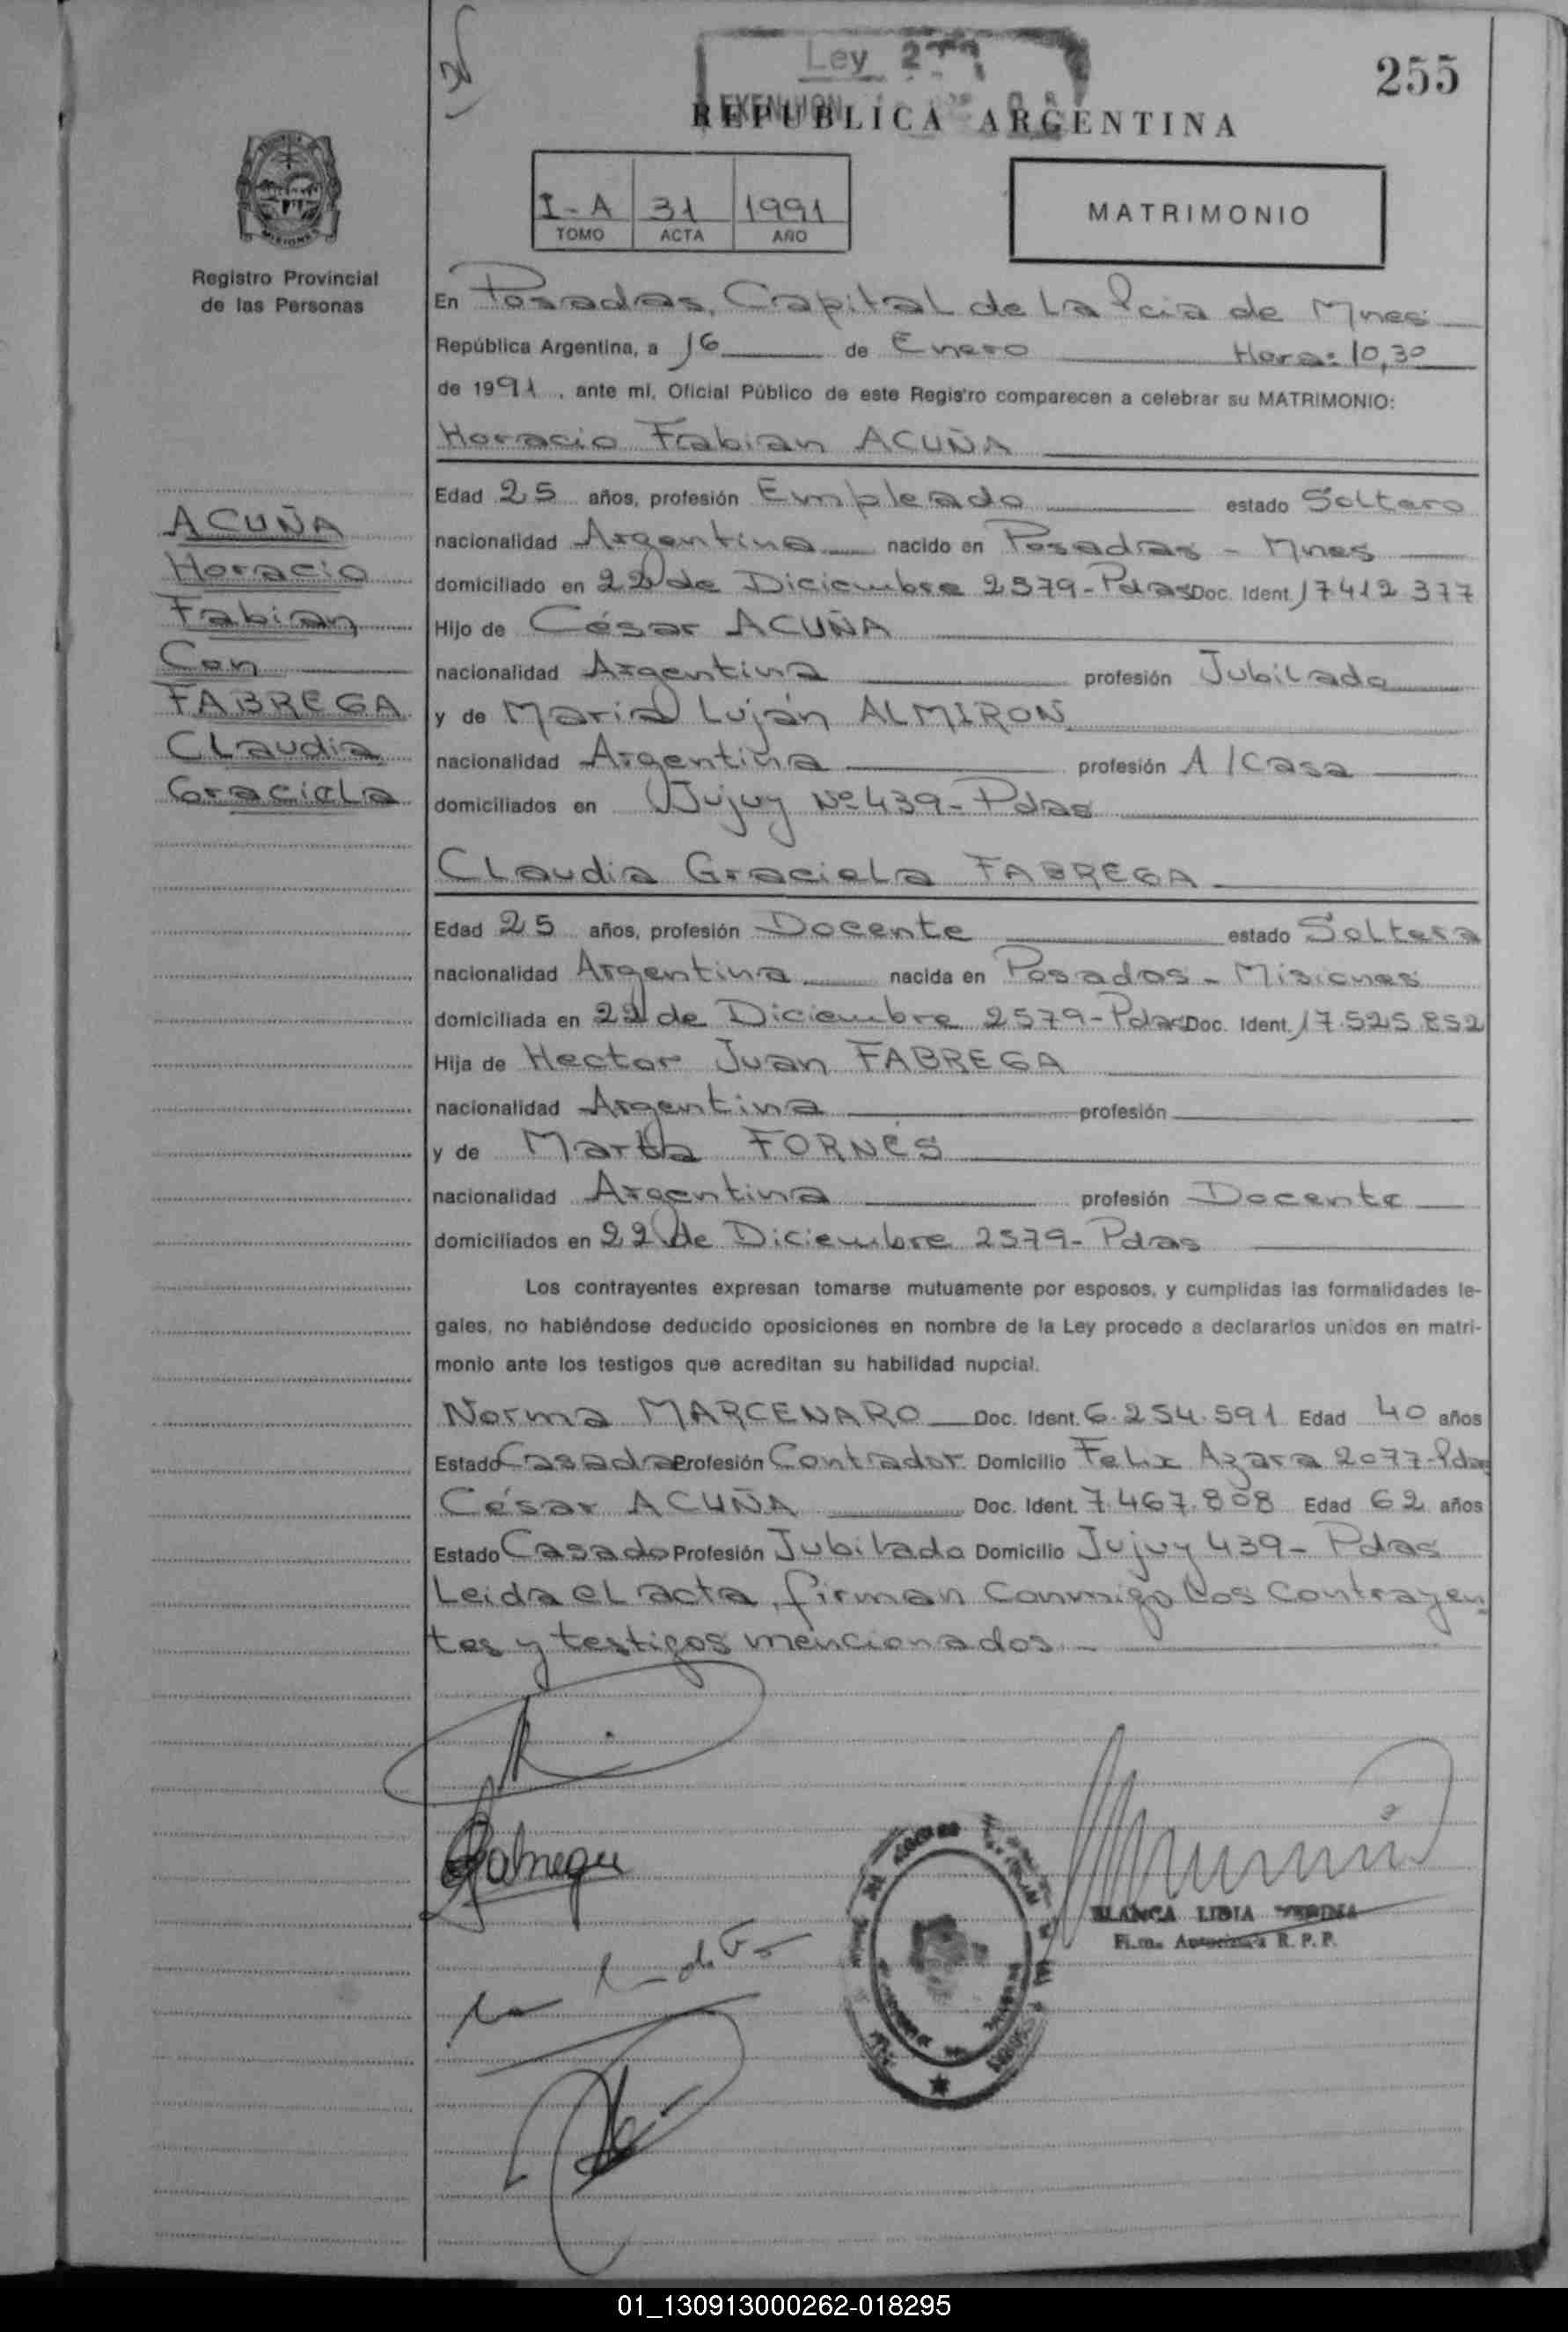 Ley
255
REPUBLICA ARGENTINA
I-A 31 1991
TOMO ACTA AÑO
MATRIMONIO
MISIONES
Registro Provincial
de las Personas
En Posadas, Capital de La Pcia de Mnes
República Argentina, a 16 de Enero Hora: 10,30
de 1991, ante mí, Oficial Público de este Registro comparecen a celebrar su MATRIMONIO:
Horacio Fabian ACUÑA
Edad 25 años, profesión Empleado estado Soltero
ACUÑA
nacionalidad Argentina nacido en Posadas - Mnes
Horacio
domiciliado en 22 de Diciembre 2579-Pdas Doc. Ident. 17412377
Fabian
Hijo de César ACUÑA
Con
nacionalidad Argentina profesión Jubilado
FABREGA
y de María Luján ALMIRON
Claudia
nacionalidad Argentina profesión A/Casa
Graciela
domiciliados en Jujuy Nº 439- Pdas
Claudia Graciela FABREGA
Edad 25 años, profesión Docente estado Soltera
nacionalidad Argentina nacida en Posadas - Misiones
domiciliada en 22 de Diciembre 2579-Pdas Doc. Ident. 17.525.852
Hija de Hector Juan FABREGA
nacionalidad Argentina profesión
y de Marta FORNÉS
nacionalidad Argentina profesión Docente
domiciliados en 22 de Diciembre 2579- Pdas
Los contrayentes expresan tomarse mutuamente por esposos, y cumplidas las formalidades le-
gales, no habiéndose deducido oposiciones en nombre de la Ley procedo a declararlos unidos en matri-
monio ante los testigos que acreditan su habilidad nupcial.
Norma MARCENARO Doc. Ident. 6.254.591 Edad 40 años
Estado Casada Profesión Contador Domicilio Felix Azara 2077-Pdas
César ACUÑA Doc. Ident. 7.467.808 Edad 62 años
Estado Casado Profesión Jubilado Domicilio Jujuy 439- Pdas
Leida el acta, firman conmigo los contrayen
tes y testigos mencionados -
Fabrega
BLANCA LIDIA
R. P. P.
01_130913000262-018295